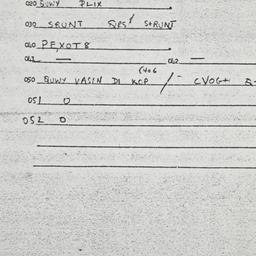 020 BUWY PLIX
030 SRUNT STRUNT
040 PEXOT8
042 — 042 —
050 BUWY VASEN DI KOP / CVOG+
051 0
052 0